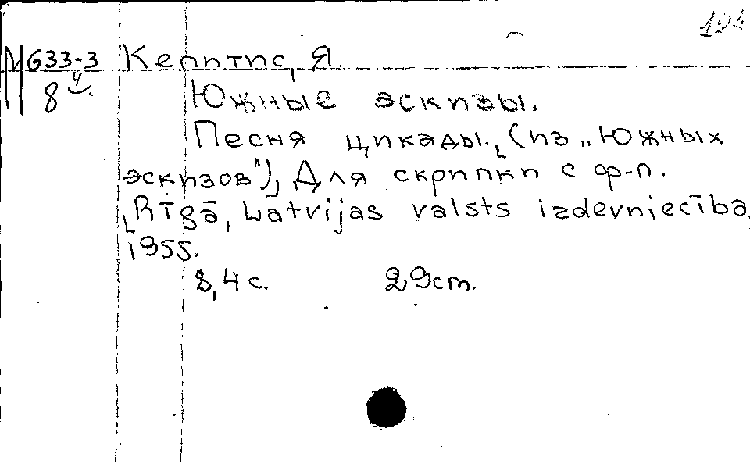 М 633-3 Кепитис, Я
8
Южные эскизы.
Песня цикады. (из „Южных
эскизов"), Для скрипки с ф-п.
[Rīgā, Latvijas valsts izdevniecība,
1955.
8,4 с. 29 cm.